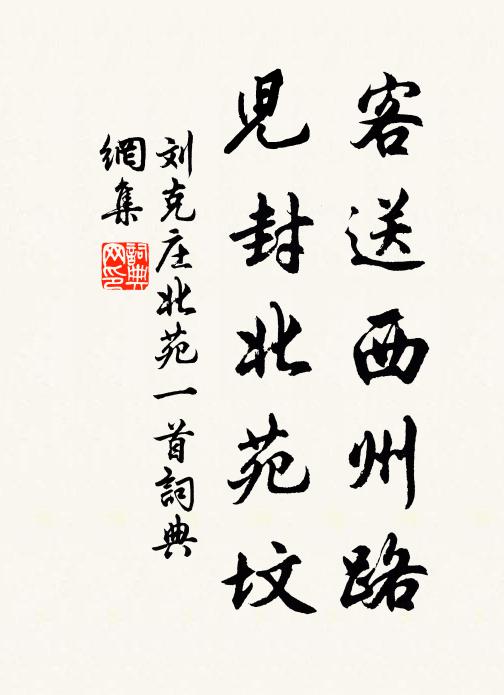 客送西州路
兒封北苑坟
刘克庄北苑一首詞典
網集
詞典网印